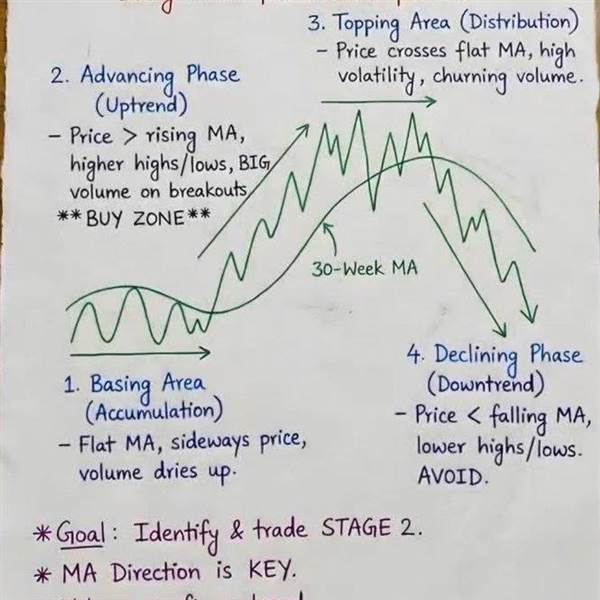 3. Topping Area (Distribution)
– Price crosses flat MA, high
volatility, churning volume.
2. Advancing Phase
(Uptrend)
– Price > rising MA,
higher highs/lows, BIG
volume on breakouts
**BUY ZONE**
30-Week MA
1. Basing Area
(Accumulation)
– Flat MA, sideways price,
volume dries up.
4. Declining Phase
(Downtrend)
– Price < falling MA,
lower highs/lows.
AVOID.
* Goal: Identify & trade STAGE 2.
* MA Direction is KEY.